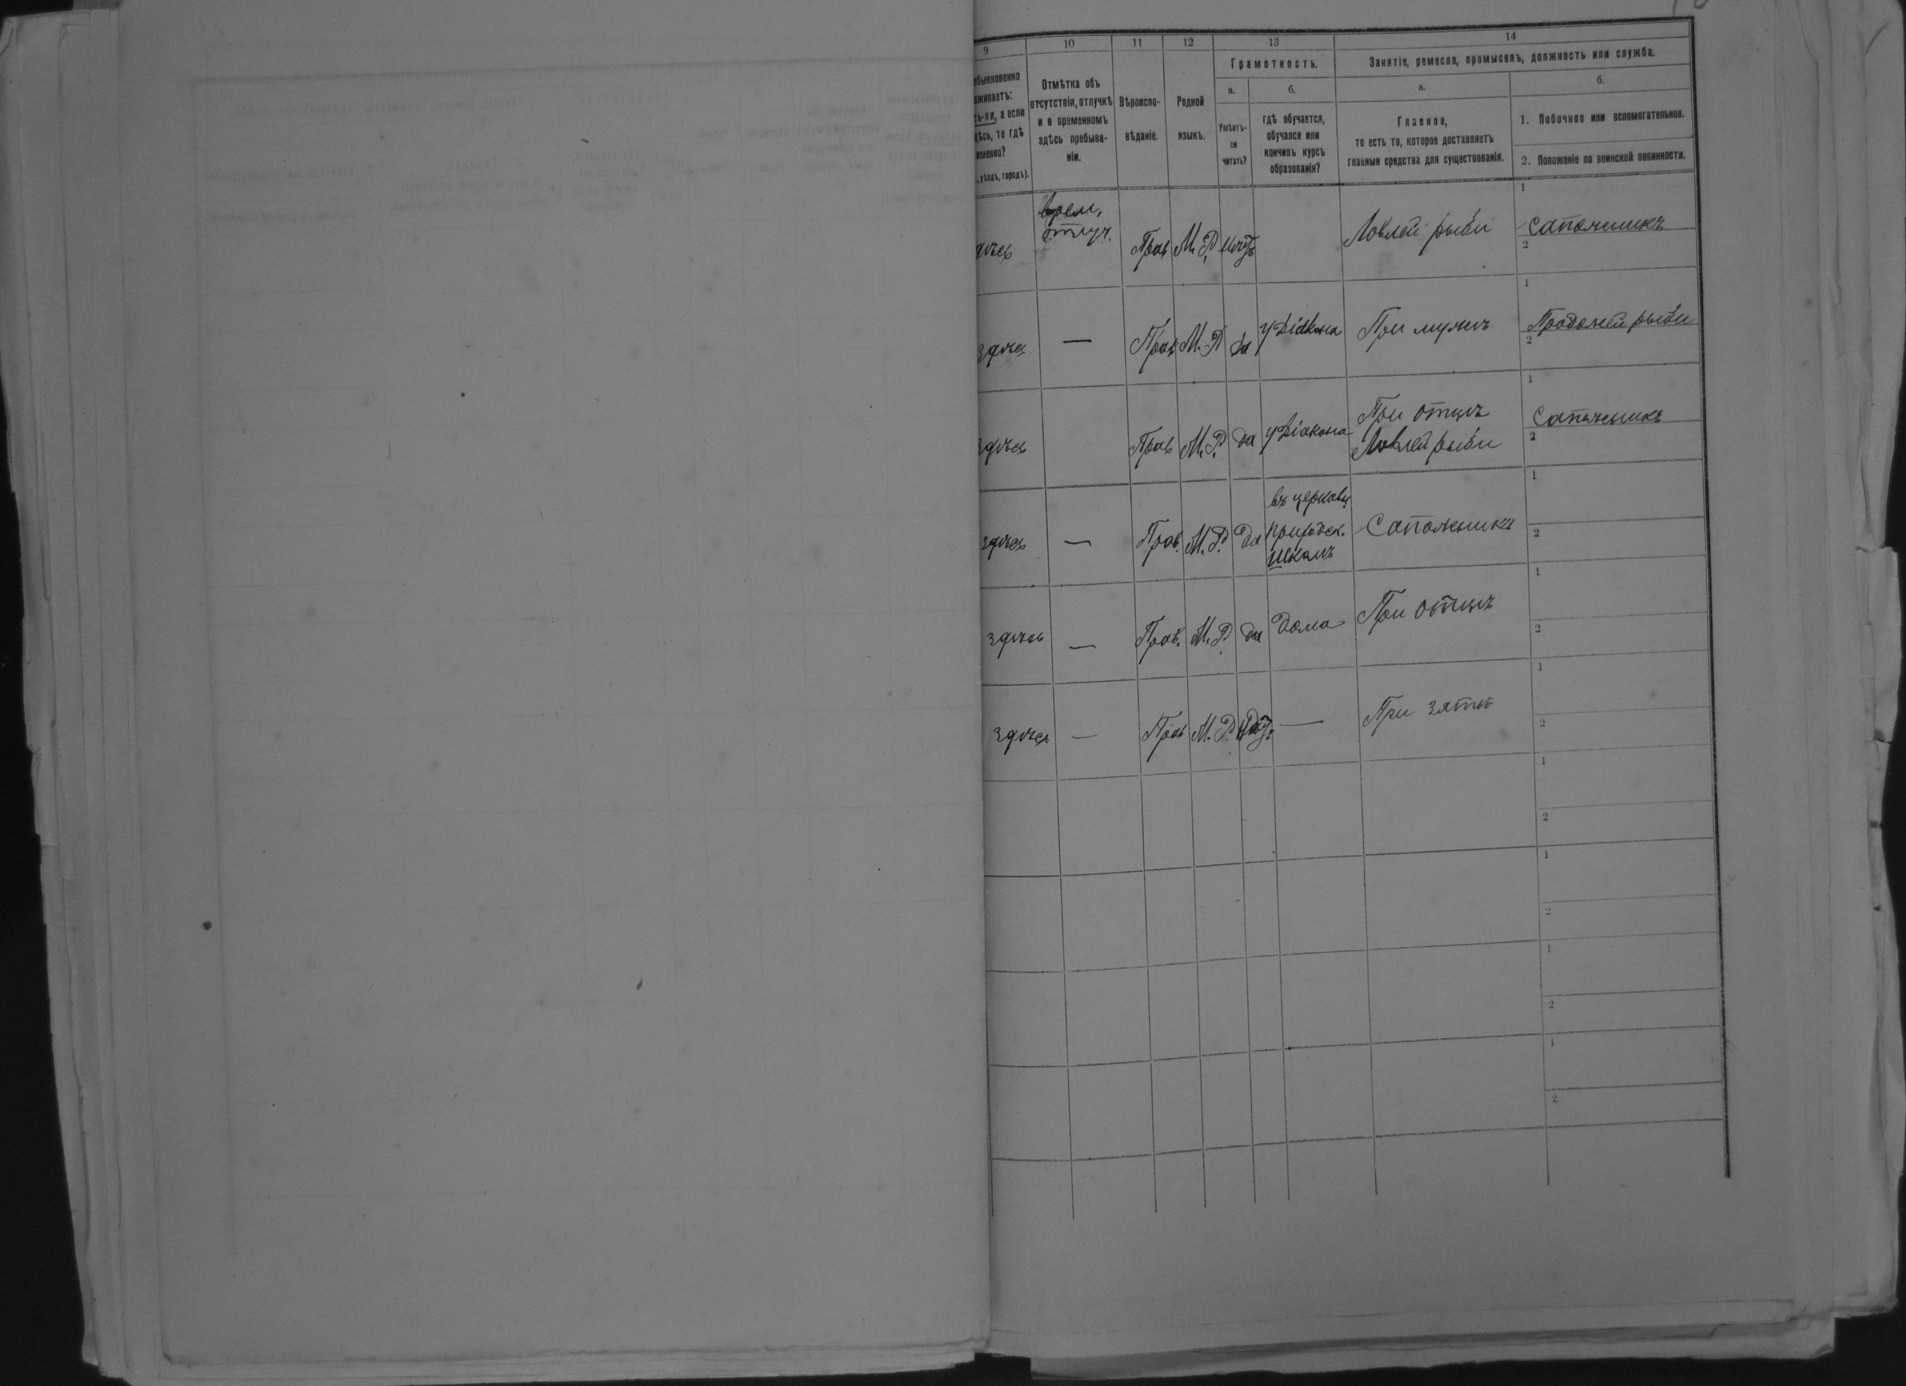 9 10 11 12 13 14
Грамотность.
Занятіе, ремесло, промыселъ, должность или служба.
быкновенно
живаетъ:
сь-ли, а если
дѣсь, то гдѣ
именно?
, уѣздъ, городъ).
Отмѣтка объ
отсутствіи, отлучкѣ
и о временномъ
здѣсь пребыва-
ніи.
Вѣроиспо-
вѣданіе.
Родной
языкъ.
а.
Умѣетъ-
ли
читать?
б.
гдѣ обучается,
обучался или
кончилъ курсъ
образованія?
а.
Главное,
то есть то, которое доставляетъ
главныя средства для существованія.
б.
1. Побочное или вспомогательное.
2. Положеніе по воинской повинности.
дѣсь
врем.
отлуч.
Прав М. Р. нѣтъ
Ловлей рыби
1
Сапожникъ
2
здѣсь — Прав М. Р. да у Діакона При мужѣ
1
Продажей рыби
2
здѣсь Прав М. Р. да у Діакона
При отцѣ
Ловлей рыби
1
Сапожникъ
2
здѣсь — Прав. М. Р. да
въ церковн
приходск.
школѣ
Сапожникъ
1
2
здѣсь — Прав. М. Р. да дома При отцѣ
1
2
здѣсь — Прав М. Р. нѣтъ — При зятѣ
1
2
1
2
1
2
1
2
1
2